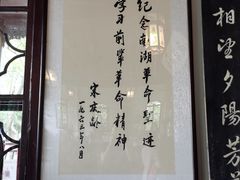 纪念南湖革命圣迹
学习前辈革命精神
宋庆龄
一九六三年八月
相望夕陽芳